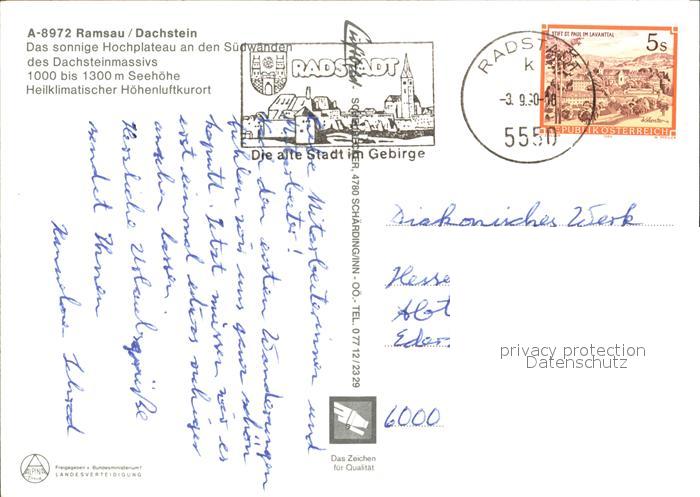 A-8972 Ramsau / Dachstein
Das sonnige Hochplateau an den Südwänden
des Dachsteinmassivs
1000 bis 1300 m Seehöhe
Heilklimatischer Höhenluftkurort
RADSTADT
Die alte Stadt im Gebirge
RADSTADT
K
-3. 9.90-18
5550
STIFT ST. PAUL IM LAVANTTAL
5s
REPUBLIK ÖSTERREICH
Liebe Mitarbeiterinnen und
Mitarbeiter!
Nach den ersten Wanderungen
fühlen wir uns ganz schön
kaputt. Jetzt müssen wir es
erst einmal etwas ruhiger
angehen lassen.
Herzliche Urlaubsgrüße
sendet Ihnen
Hannelore
4780 SCHÄRDING/INN - OÖ. - TEL. 0 77 12 / 23 29
Diakonisches Werk
Hesse
Abt
Eder
6000
privacy protection
Datenschutz
Das Zeichen
für Qualität
ALPINE
Freigegeben v. Bundesministerium f.
LANDESVERTEIDIGUNG